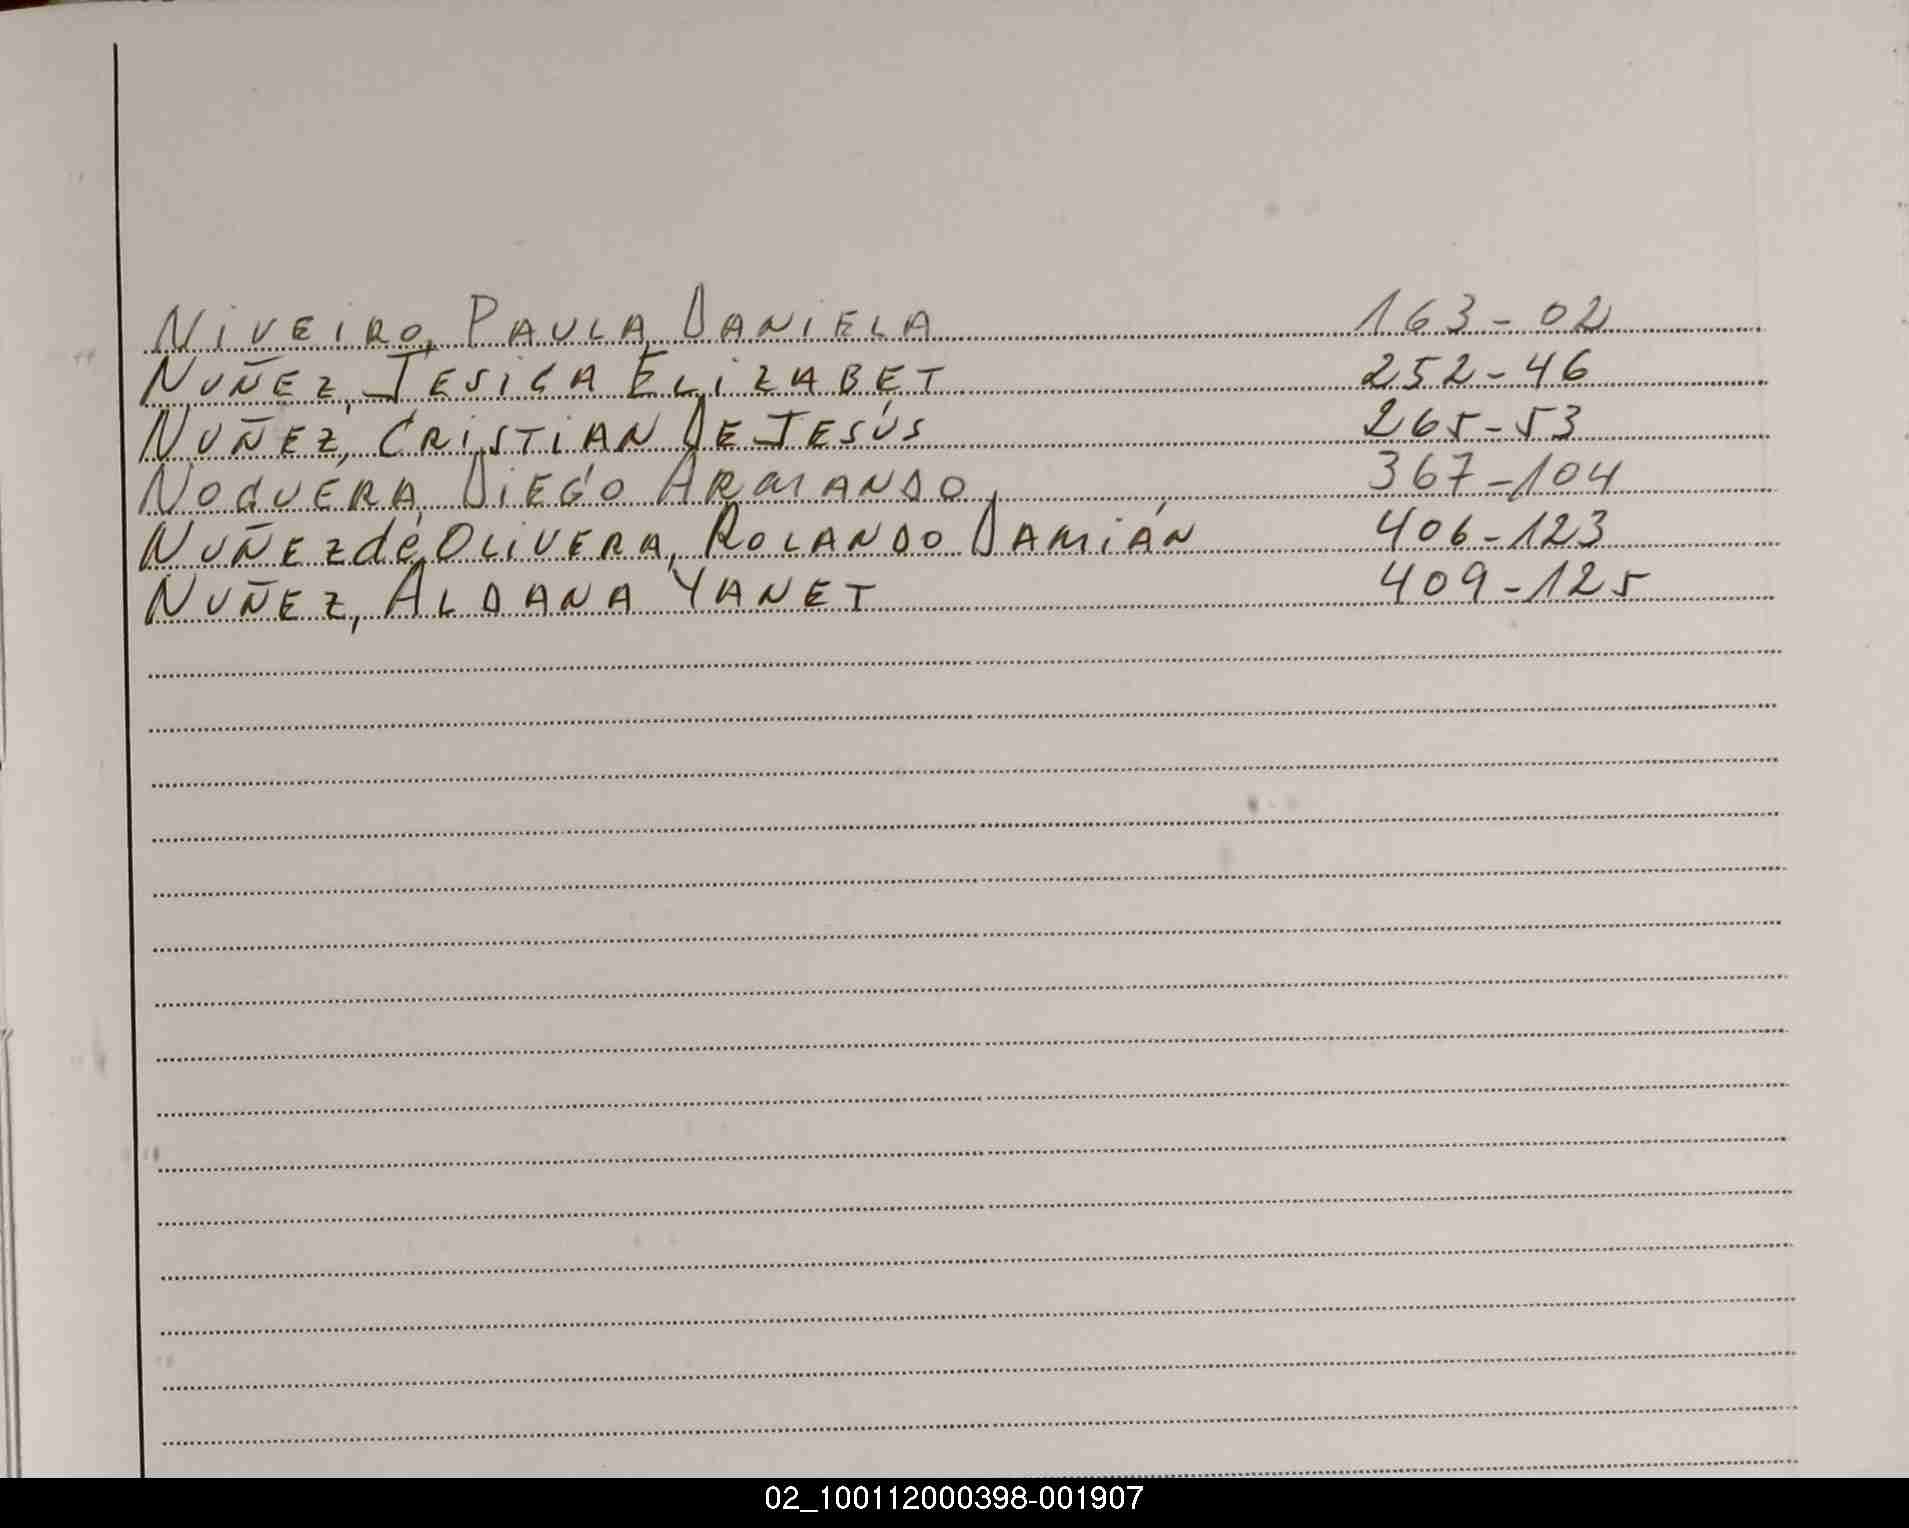 NIVEIRO, PAULA DANIELA 163-02
NUÑEZ, JESICA ELIZABET 252-46
NUÑEZ, CRISTIAN DE JESÚS 265-53
NOGUERA, DIEGO ARMANDO 367-104
NUÑEZ de OLIVERA, ROLANDO DAMIÁN 406-123
NUÑEZ, ALDANA YANET 409-125
02_100112000398-001907